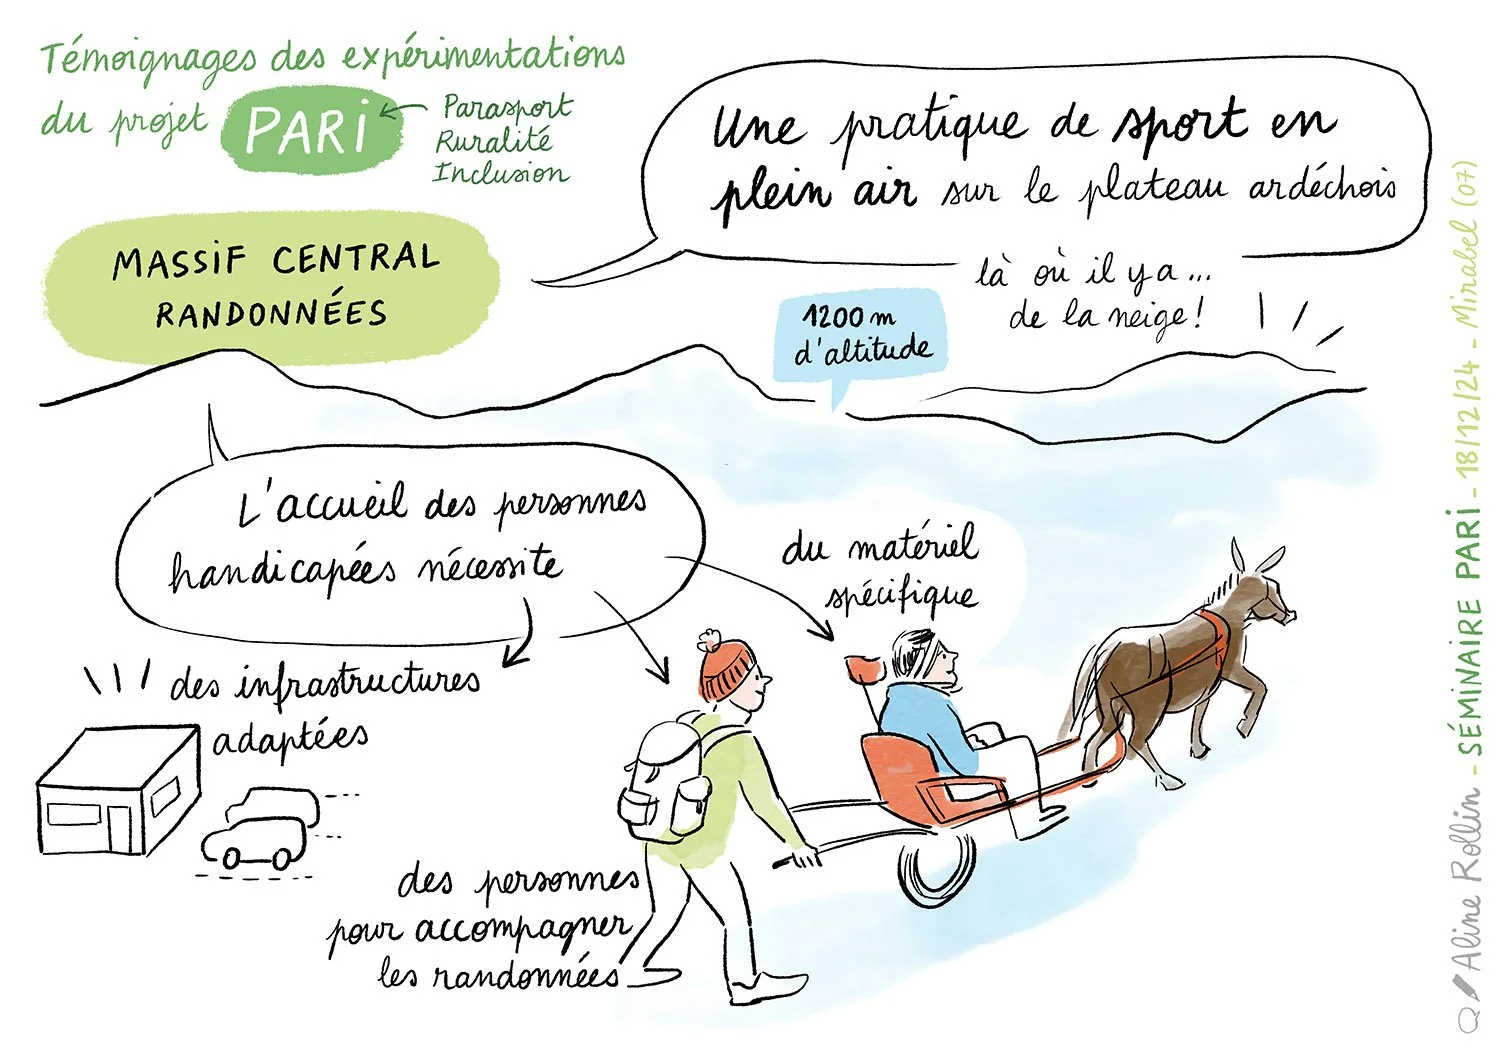 Témoignages des expérimentations
du projet PARI
Parasport
Ruralité
Inclusion
MASSIF CENTRAL
RANDONNÉES
Une pratique de sport en
plein air sur le plateau ardéchois
là où il y a...
de la neige !
1200 m
d'altitude
L'accueil des personnes
handicapées nécessite
du matériel
spécifique
des infrastructures
adaptées
des personnes
pour accompagner
les randonnées
Aline Rollin - SÉMINAIRE PARI - 18/12/24 - Mirabel (07)